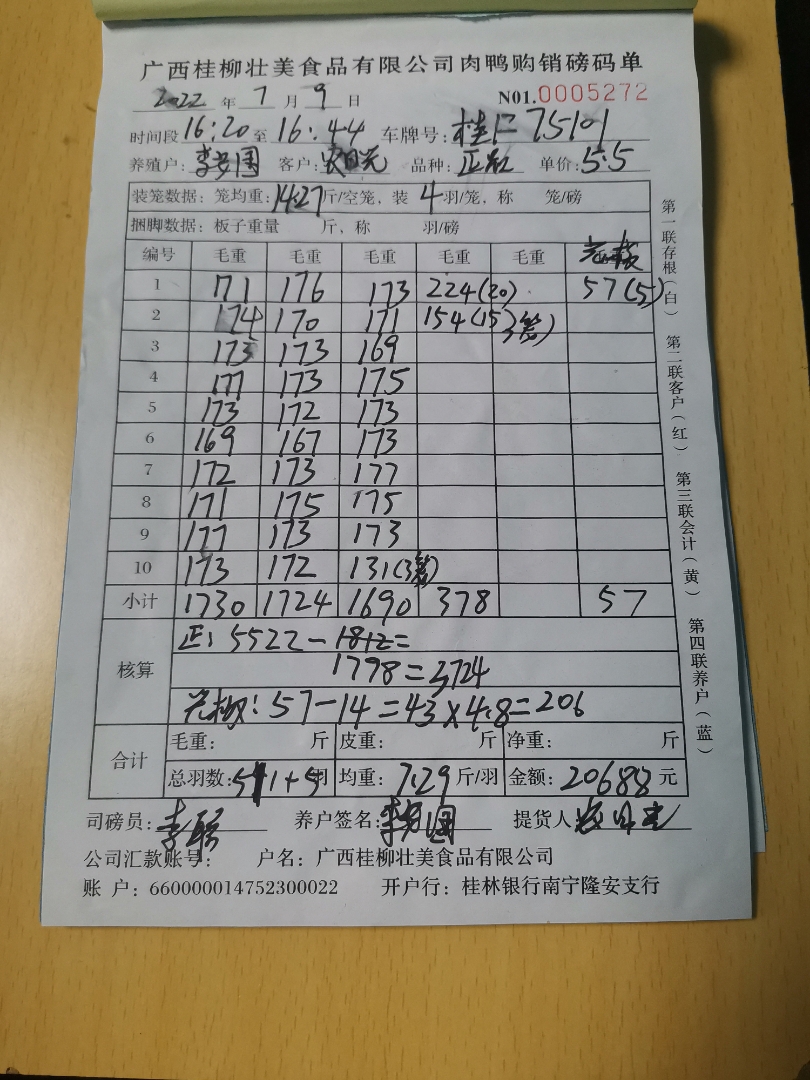 广西桂柳壮美食品有限公司肉鸭购销磅码单
2022 年 7 月 9 日 N01.0005272
时间段 16:20 至 16:44 车牌号: 桂F75101
养殖户: 李 国 客户: 农 品种: 正 单价: 5.5
装笼数据: 笼均重: 14.27 斤/空笼, 装 4 羽/笼, 称 笼/磅
捆脚数据: 板子重量 斤, 称 羽/磅
编号 毛重 毛重 毛重 毛重 毛重
1 171 176 173 224(20) 57(5)
2 174 170 171 154(15)
3 173 173 169
4 177 173 175
5 173 172 173
6 169 167 173
7 172 173 177
8 171 175 175
9 177 173 173
10 173 172 131(3
小计 1730 1724 1690 378 57
核算 正: 5522-1812=
1798=3724
57-14=43×4.8=206
合计 毛重: 斤 皮重: 斤 净重: 斤
总羽数: 511+5羽 均重: 7.29 斤/羽 金额: 20688 元
司磅员: 李 养户签名: 李 国 提货人
公司汇款账号: 户名: 广西桂柳壮美食品有限公司
账 户: 660000014752300022 开户行: 桂林银行南宁隆安支行
第一联存根(白) 第二联客户(红) 第三联会计(黄) 第四联养户(蓝)